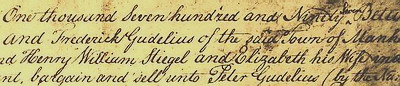 One thousand Seven hundred and Ninety Seven Betw
and Frederick Gudelius of the said Town of Manh
nd Henry William Stiegel and Elizabeth his Wife and
nt, bargain and sell unto Peter Gudelius (by the Na